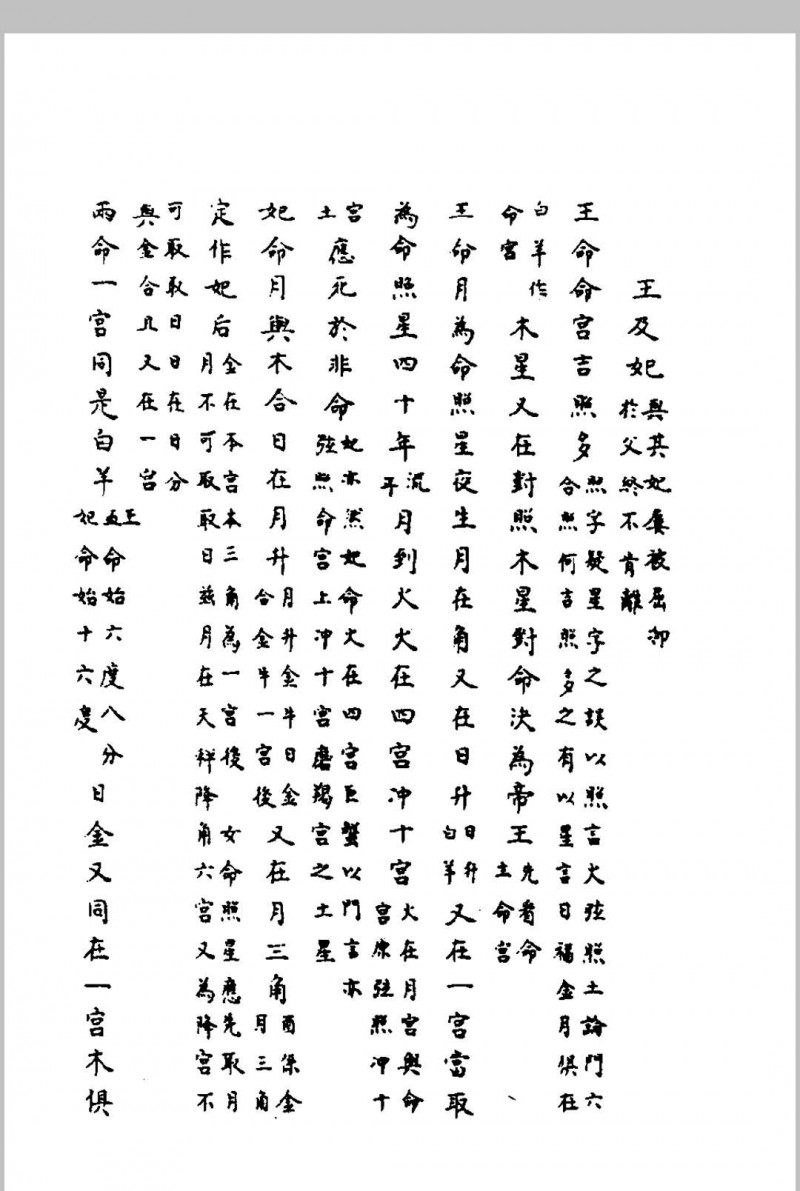 王及妃與其妃屢被屈抑於父終不肯離
王命命宮吉照多照字疑星字之誤以照言火弦照土論門六合照何吉照多之有以星言日福金月俱在
白羊作命宮木星又在對照木星對命決為帝王先看命主命宮
王命月為命照星夜生月在角又在日升日升白羊又在一宮當取
為命照星四十年流年月到火火在四宮冲十宮火在月宮與命宮原弦照冲十
宮土應死於非命妃亦然妃命火在四宮巨蟹以門言亦弦照命宮上冲十宮磨羯宮之土星
妃命月與木合日在月升月升金牛日金合金牛一宮後又在月三角酉係金月三角
定作妃后金在本宮本三角為一宮後女命照星應先取月月不可取取日茲月在天秤降角六宮又為降宮不
可取取日日在日分與金合且又在一宮
兩命一宮同是白羊王五命始六度八分妃命始十六度日金又同在一宮木俱